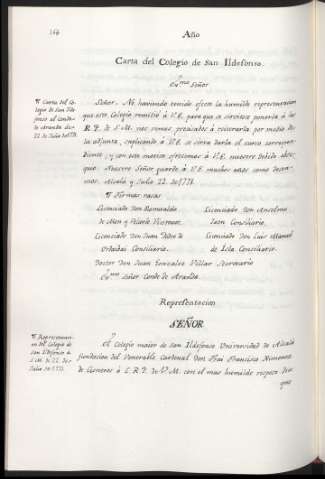 Año
Carta del Colegio de San Ildefonso.
Exmo Señor
¶ Carta del Co-
legio de San Ilde-
fonso al Conde
Aranda de
22 de Julio de 1771.
Señor. No haviendo tenido efecto la humilde representacion
que este Colegio remitió á V.E. para que se sirviese ponerla á los
R.P. de S.M. nos vemos precisados á reiterarla por medio de
la adjunta, suplicando á V.E. se sirva darla el curso correspon-
diente, y con este motivo ofrecemos á V.E. nuestro devido obse-
quio. Nuestro Señor guarde á V.E. muchos años como desea-
mos. Alcalá y Julio 22 de 1771.
¶ Firmas rasas
Licenciado Don Romualdo
Licenciado Don Anselmo
Vicerector.
Jaen Consiliario.
Licenciado Don Juan Isidro de
Licenciado Don Luis Manuel
Consiliario.
de Isla Consiliario.
Doctor Don Juan Gonzalez Villar Secretario
Exmo Señor Conde de Aranda.
Representacion
SEÑOR
¶ Representaci-
on del Colegio de
San Ildefonso á
S.M. de 22 de
Julio de 1771.
El Colegio maior de San Ildefonso Universidad de Alcalá
fundacion del Venerable Cardenal Don Frai Francisco Ximenez
de Cisneros á L.R.P. de V.M. con el mas humilde respeto dice
que